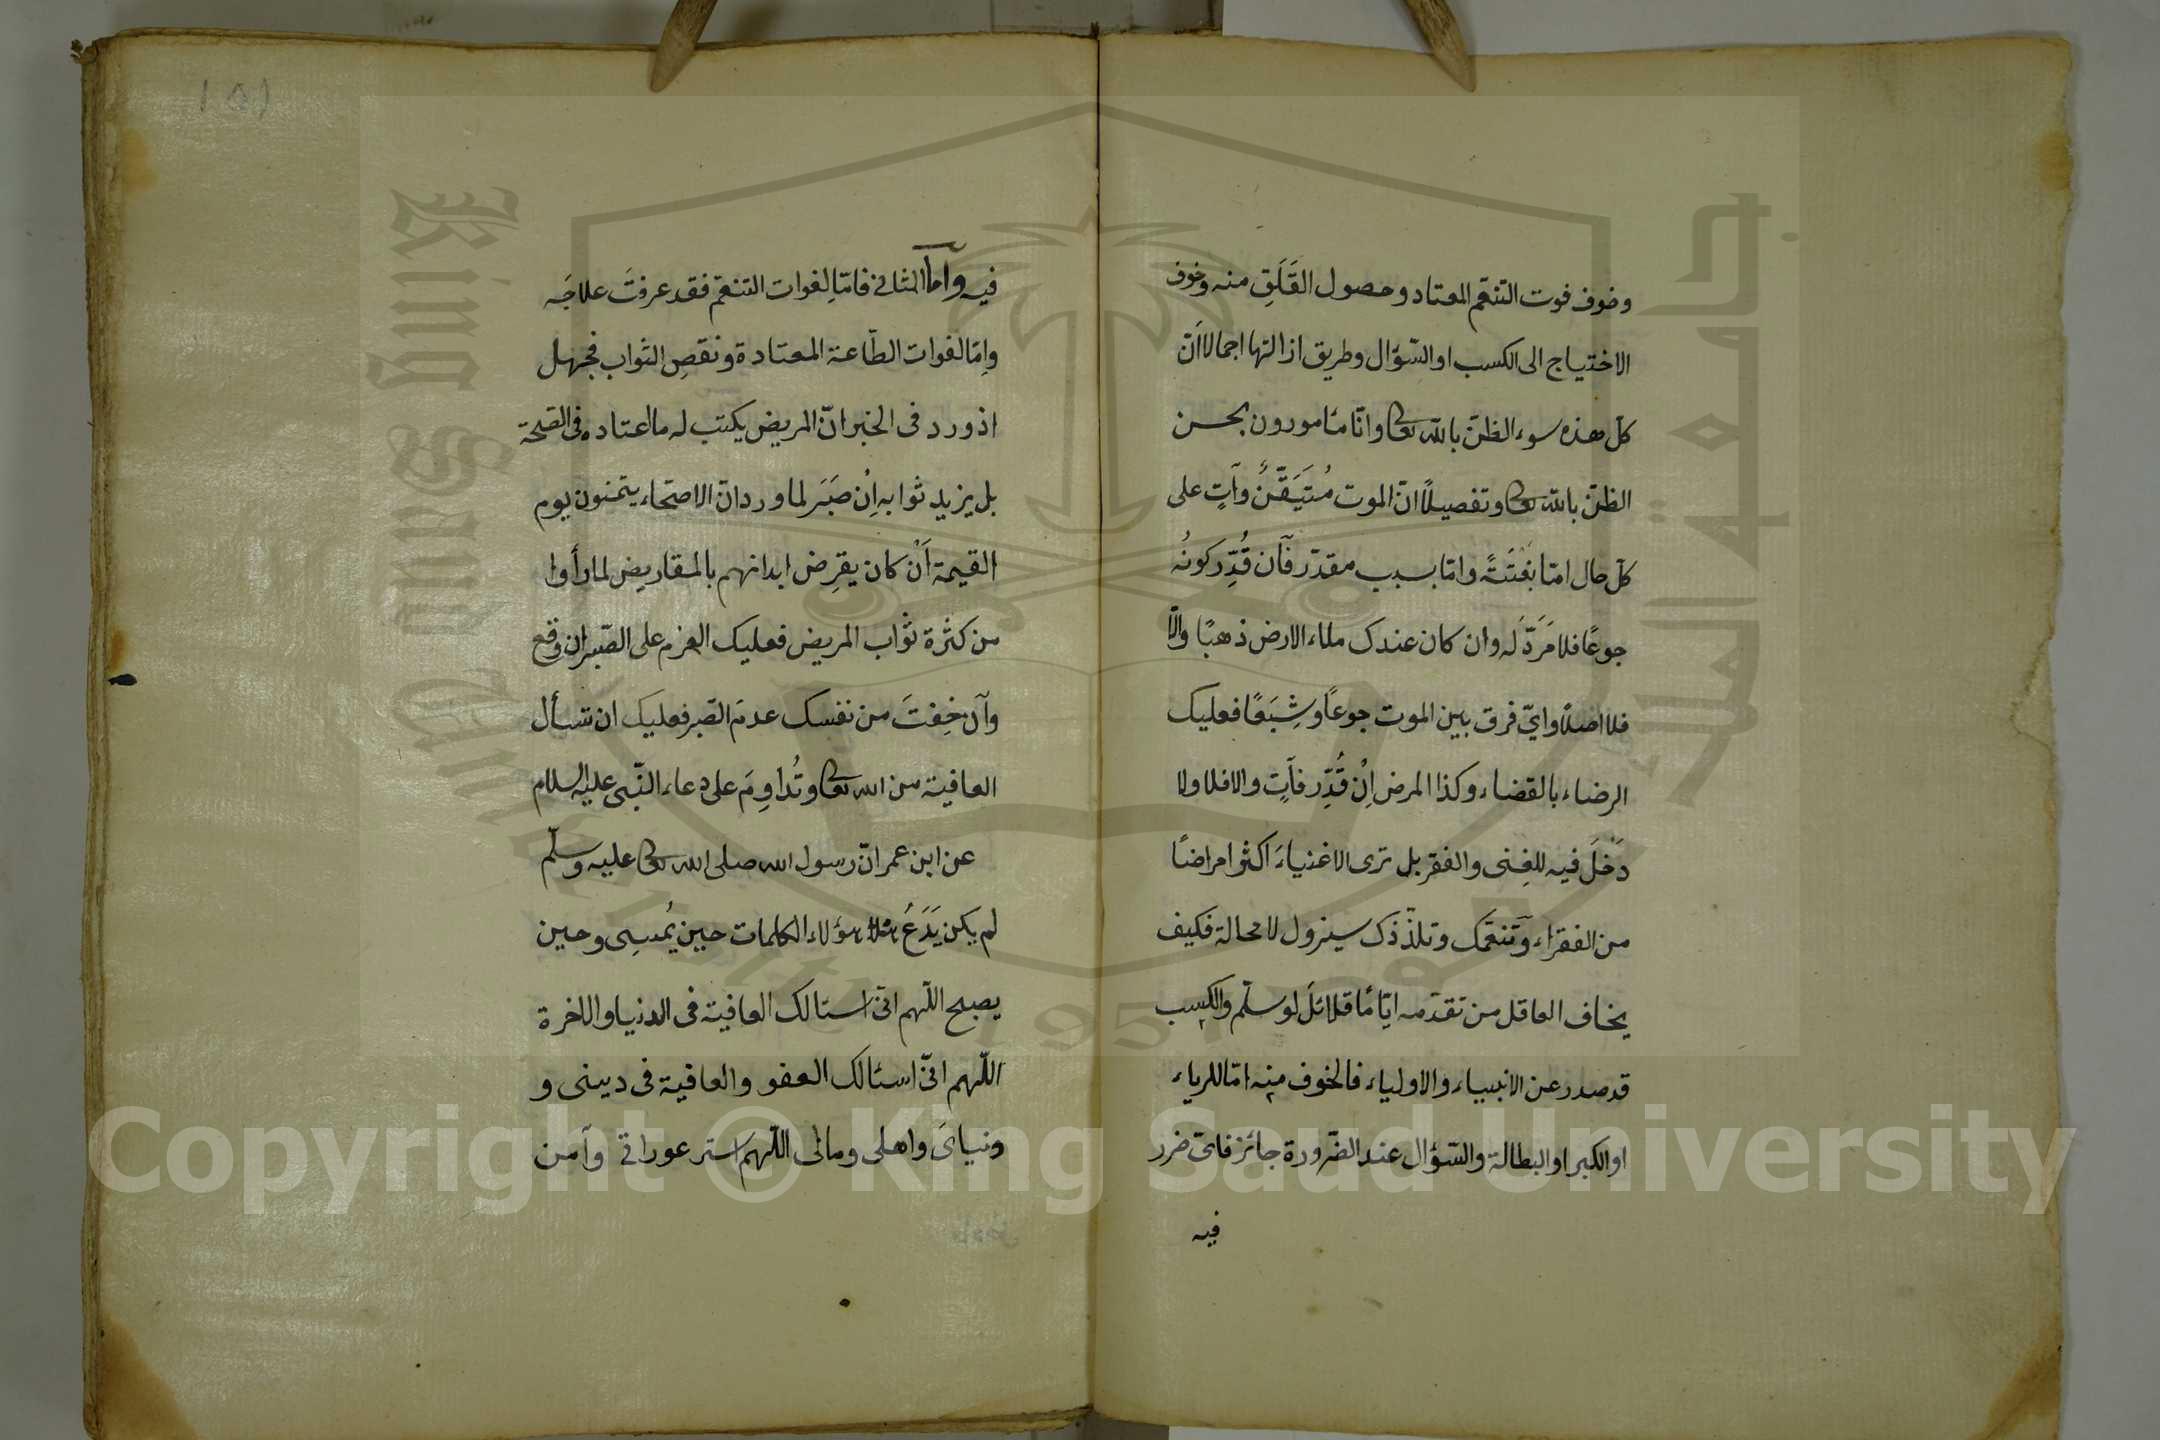 وخوف فوت التنعّم المعتاد وحصول القَلَقِ منه وخوف
الاختياج الى الكسب او السّؤال وطريق ازالتها اجمالا انّ
كلّ هذه سوء الظنّ بالله تعالى وانّا مأمورون بحسن
الظنّ بالله تعالى وتفصيلاً انّ الموت مُتَيَقَّنٌ وآتٍ على
كلّ حال امّا بَغْتَتةً وامّا بسبب مقدّر فآن قُدِّر كونُه
جوعًا فلا مَرَدَّ لَه وان كان عندك ملاء الارض ذهبًا والّا
فلا اصلاً وايّ فرق بين الموت جوعاً وشِبَعًا فعليك
الرضاء بالقضاء وكذا المرض اِنْ قُدِّر فآتٍ والا فلا ولا
دَخْلَ فيه للغِنى والفقر بل ترى الاغنياءَ اكثر امراضًا
من الفقراء وتنعّمك وتلذّذك سيزول لا محالة فكيف
يخاف العاقل من تقدّمه ايّامًا قلائلَ لو سلّم والكسب
قد صدر عن الانبياء والاولياء فالخوف منه امّا للرياء
او الكبر او البطالة والسّؤال عند الضّرورة جائز فاىّ ضرر
فيه
١٥١
فيه وآما الثاني فامّا لِفوات التنعّم فقد عرفتَ علاجَه
وامّا لفوات الطّاعة المعتادة ونقصِ الثواب فجهل
اذ ورد فى الخبر انّ المريض يكتب له ما اعتاده فى الصّحّة
بل يزيد ثوابه اِنْ صَبَر لما ورد انّ الاصحّاء يتمنون يوم
القيمة اَنْ كان يقرِض ابدانهم بالمقاريض لما رأوا
من كثرة ثواب المريض فعليك العزم على الصّبر ان وقع
وآن خِفتَ من نفسك عدمَ الصّبر فعليك ان تسأل
العافية من الله تعالى وتُداوِمَ على دعاء النّبى عليه السلام
عن ابن عمر انّ رسول الله صلى الله تعالى عليه وسلّم
لم يكن يَدَعُ هؤلاء الكلمات حين يُمسِى وحين
يصبح اللّهم انّى اسئالك العافية فى الدنيا والاخرة
اللّهم انّى اسئالك العفو والعافية فى دينى و
دنياىَ واهلى ومالى اللّهم استر عوراتى وآمن
King Saud University
جامعة الملك سعود
1957
Copyright © King Saud University